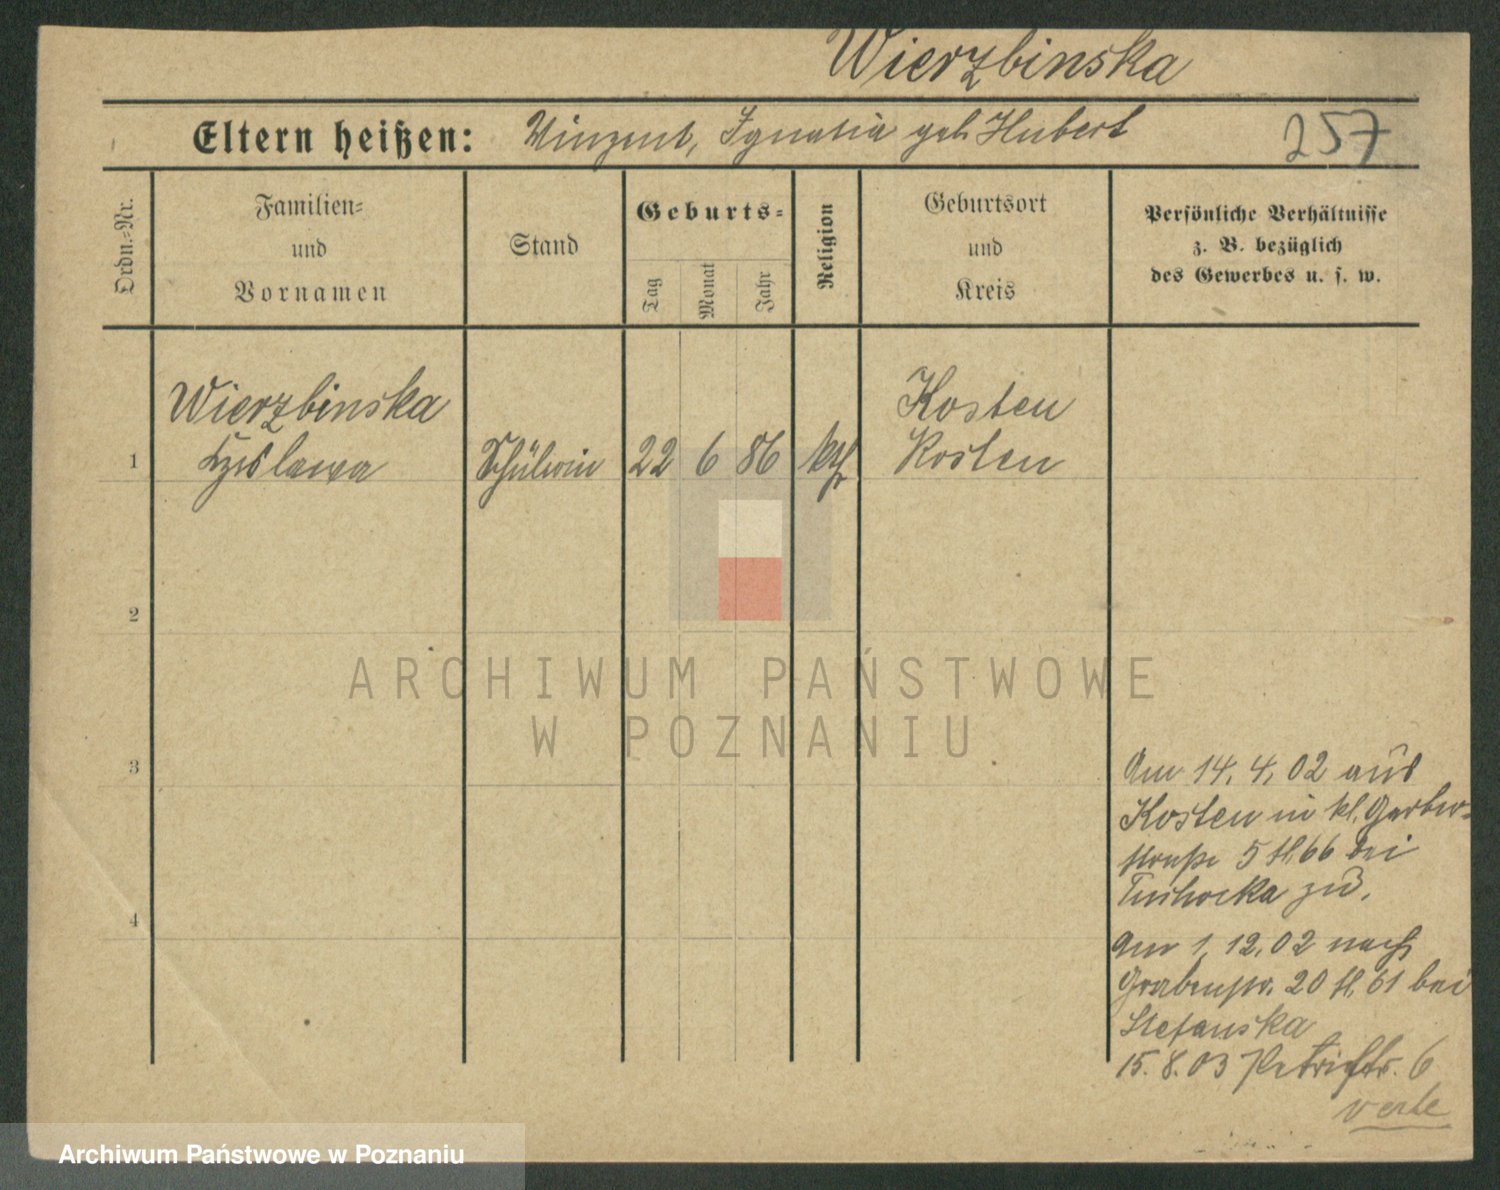 Wierzbinska
Eltern heißen: Vinzent, Ignatia geb. Hubert 257
Ordn.-Nr.
Familien-
und
Vornamen
Stand
Geburts-
Tag
Monat
Jahr
Religion
Geburtsort
und
Kreis
Persönliche Verhältnisse
z. B. bezüglich
des Gewerbes u. s. w.
1
Wierzbinska
Schülerin
22 6 86
kth
Kosten
Kosten
2
3
4
Am 14. 4. 02 aus
Kosten in kl. Gerber-
straße 5 bei
zu.
Am 1. 12. 02 nach
Grabenstr. 20 bei
Stefanska
15. 8. 03 Petristr. 6
verte
ARCHIWUM PAŃSTWOWE
W POZNANIU
Archiwum Państwowe w Poznaniu